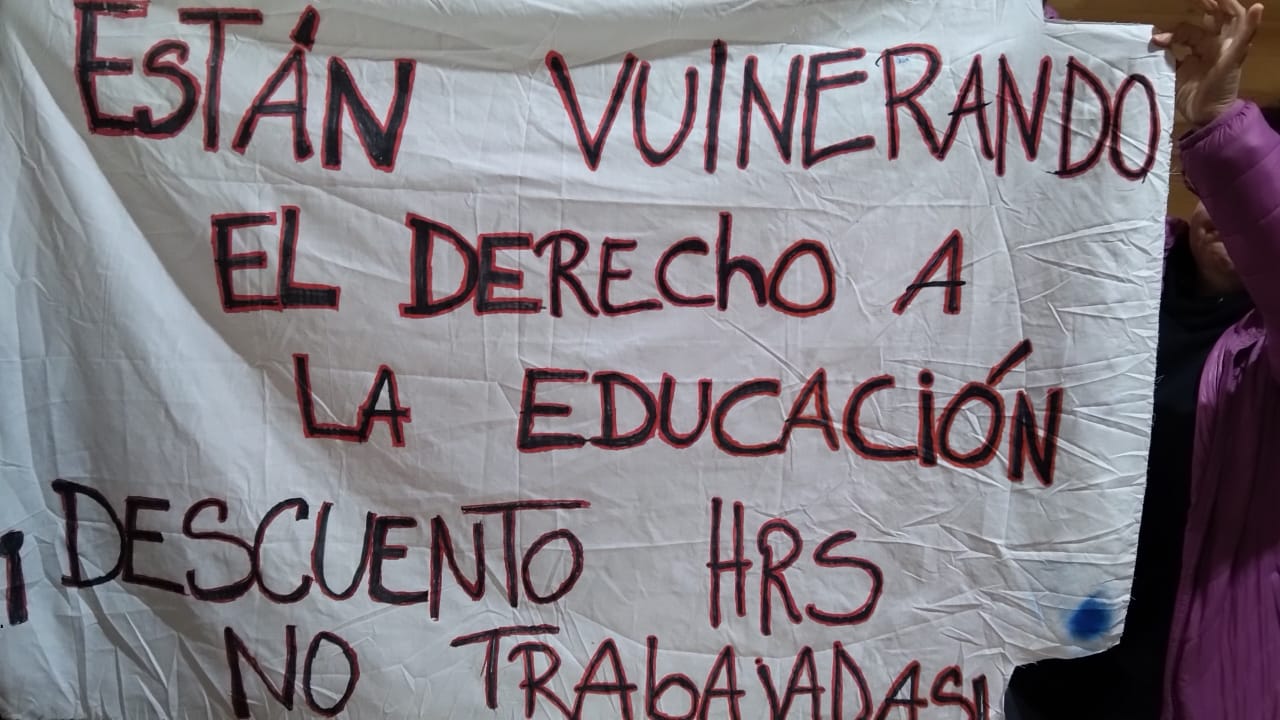 ESTÁN VULNERANDO
EL DERECHO A
LA EDUCACIÓN
¡DESCUENTO HRS
NO TRABAJADAS!